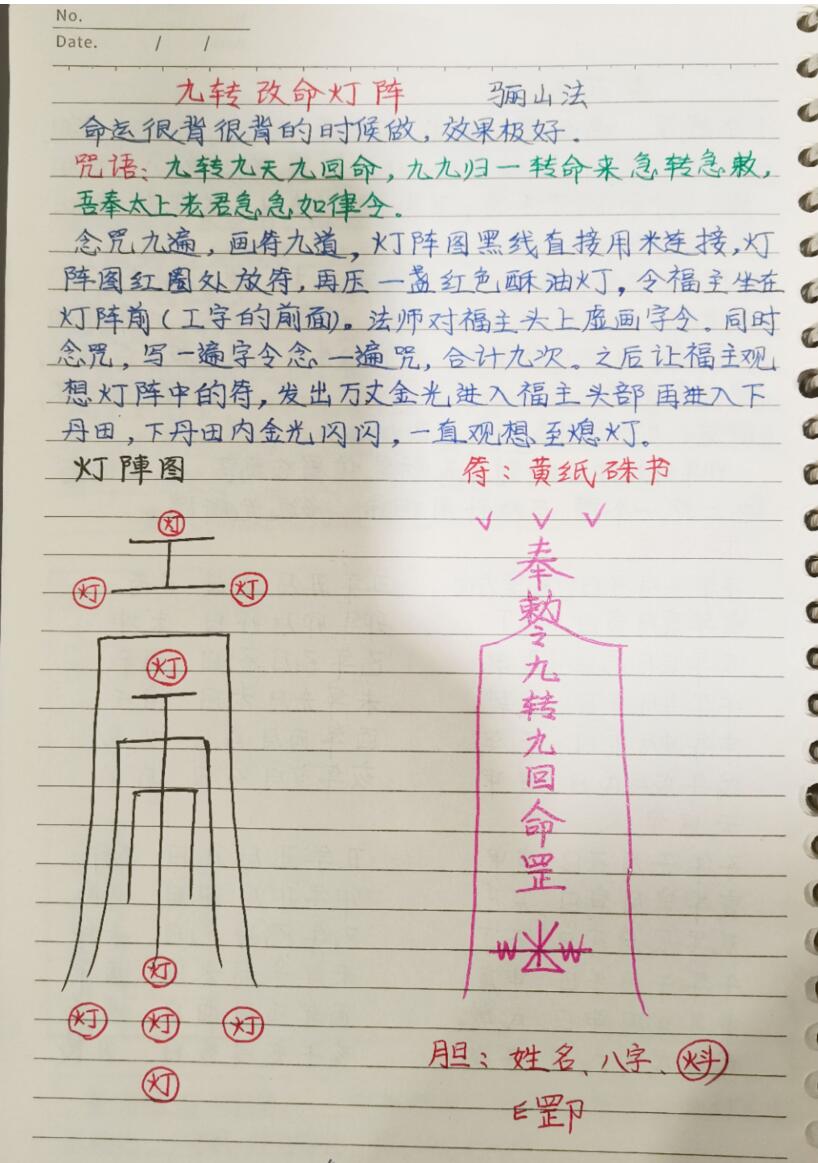 No.
Date. / /
九转改命灯阵 骊山法
命运很背很背的时候做，效果极好.
咒语：九转九天九回命，九九归一转命来急转急敕，
吾奉太上老君急急如律令.
念咒九遍，画符九道，灯阵图黑线直接用米连接，灯
阵图红圈处放符，再压一盏红色酥油灯，令福主坐在
灯阵前（工字的前面）。法师对福主头上虚画字令。同时
念咒，写一遍字令念一遍咒，合计九次。之后让福主观
想灯阵中的符，发出万丈金光进入福主头部再进入下
丹田，下丹田内金光闪闪，一直观想至熄灯。
灯陣图 符：黄纸硃书
灯
灯 灯
灯
灯
灯 灯 灯
灯
奉
敕
令
九
转
九
回
命
罡
胆：姓名、八字、
罡